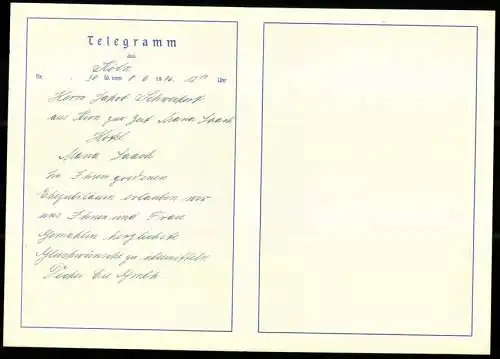 Telegramm
aus
Köln
Nr. 30 W. vom 8 6 19 12 Uhr
Herrn Schweikert
aus zur Zeit Maria Laach
Hotel
Maria Laach
Zu Ihrem goldenen
Ehejubiläum erlauben wir
uns Ihnen und Frau
Gemahlin herzlichste
Glückwünsche zu übermitteln
GmbH